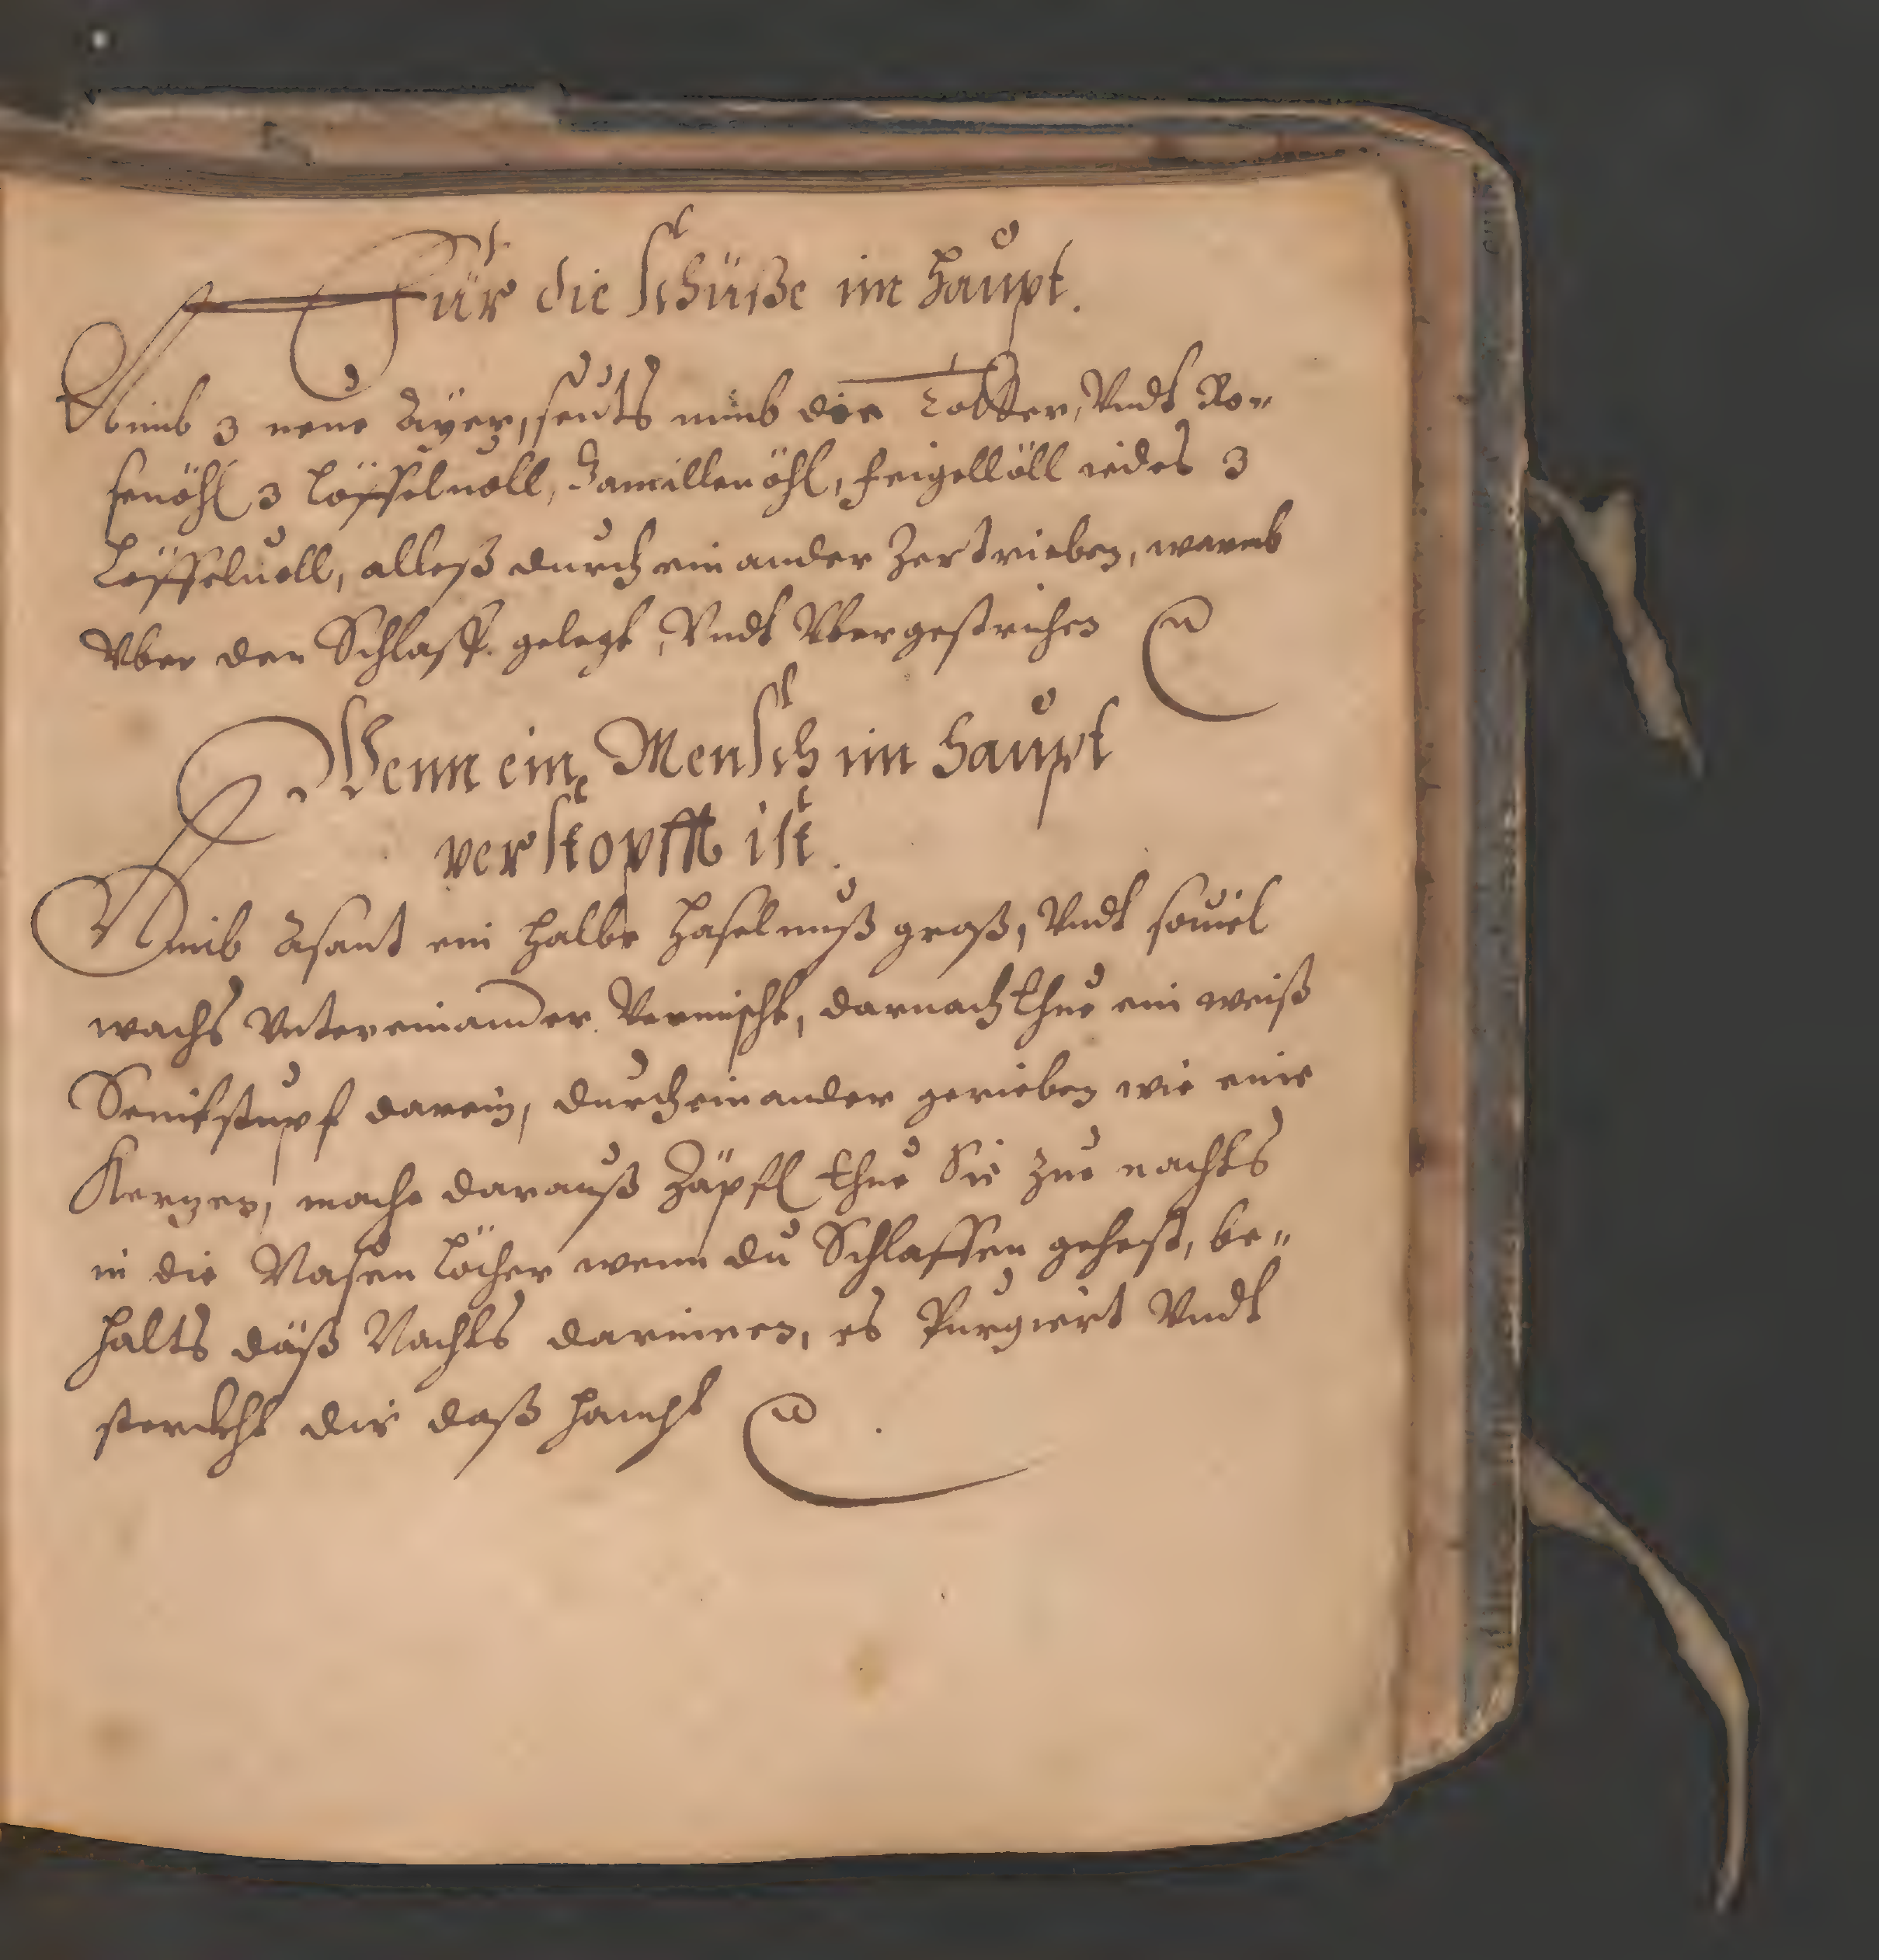 Für die schüße im haupt.
Nimb 3 neue Ayer, seuts nimb die Totter, Vndt Ro„
senöhl 3 Löffeluoll, Camillenöhl, feigellöll iedes 3
Löffeluoll, alleß durch einander Zertrieben, warmb
Vber den Schlaff gelegt, Vndt Vbergestrichen
Wenn ein Mensch im haupt
verstopfft ist.
Nimb Asant ein halbe haselnuß groß, Vndt souiel
wachs Vntereinander Vermischt, darnach thue ein weiß
Senifstupf darein, durcheinander gerieben wie eine
Kerzen, mache darauß Zäpfl thue Sie zue nachts
in die Nasen löcher wenn du Schlaffen gehest, be„
halts däß Nachts darinnen, es Purgiert Vndt
sterckht dir daß haupt